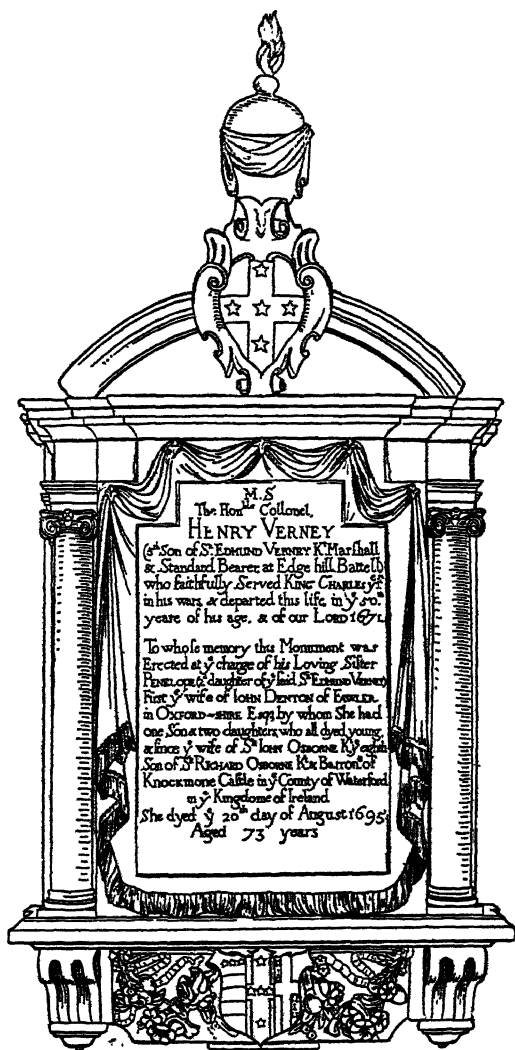 M.S
The Honble Collonel,
HENRY VERNEY
(5th Son of Sr EDMUND VERNEY Kt Marshall
& Standard Bearer at Edge hill Battell)
who faithfully Served KING CHARLES ye
in his wars & departed this life, in ye 50th
yeare of his age, & of our LORD 1671
To whose memory this Monument was
Erected at ye charge of his Loving Sister
PENELOPE daughter of ye said Sr EDMUND VERNEY
First ye wife of IOHN DENTON of FAWLER
in OXFORD-SHIRE Esqr by whom She had
one Son & two daughters, who all dyed young
& since ye wife of Sr IOHN OSBORNE Kt ye
Son of Sr RICHARD OSBORNE Kt & Barront of
KNOCKMONE Castle in ye County of Waterford
in ye Kingdome of Ireland
She dyed ye 20th day of August 1695
Aged 73 years